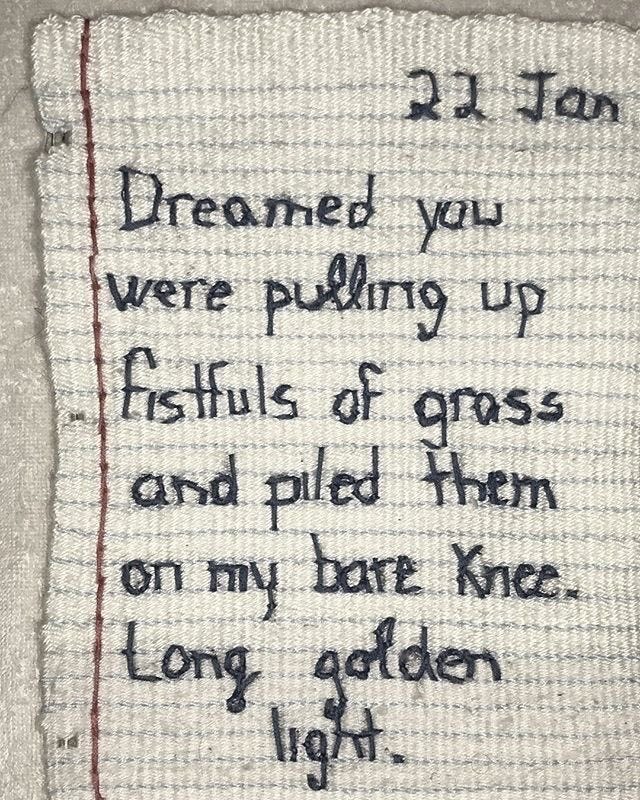 22 Jan
Dreamed you
were pulling up
fistfuls of grass
and piled them
on my bare Knee.
Long golden
light.